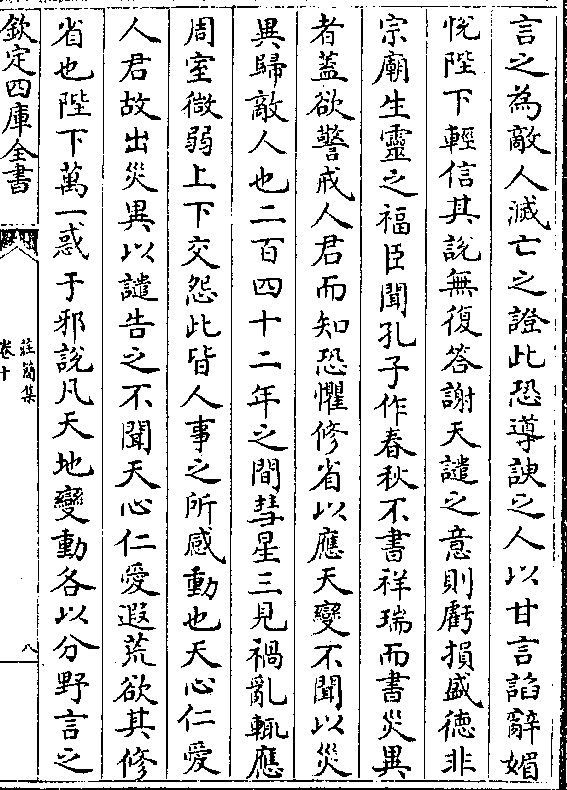 言之為敵人滅亡之證此恐導諛之人以甘言諂辭媚
悅陛下輕信其說無復答謝天譴之意則虧損盛德非
宗廟生靈之福臣聞孔子作春秋不書祥瑞而書災異
者蓋欲警戒人君而知恐懼修省以應天變不聞以災
異歸敵人也二百四十二年之間彗星三見禍亂輒應
周室微弱上下交怨此皆人事之所感動也天心仁愛
人君故出災異以譴告之不聞天心仁愛遐荒欲其修
省也陛下萬一惑于邪說凡天地變動各以分野言之
欽定四庫全書
莊簡集
卷十
八